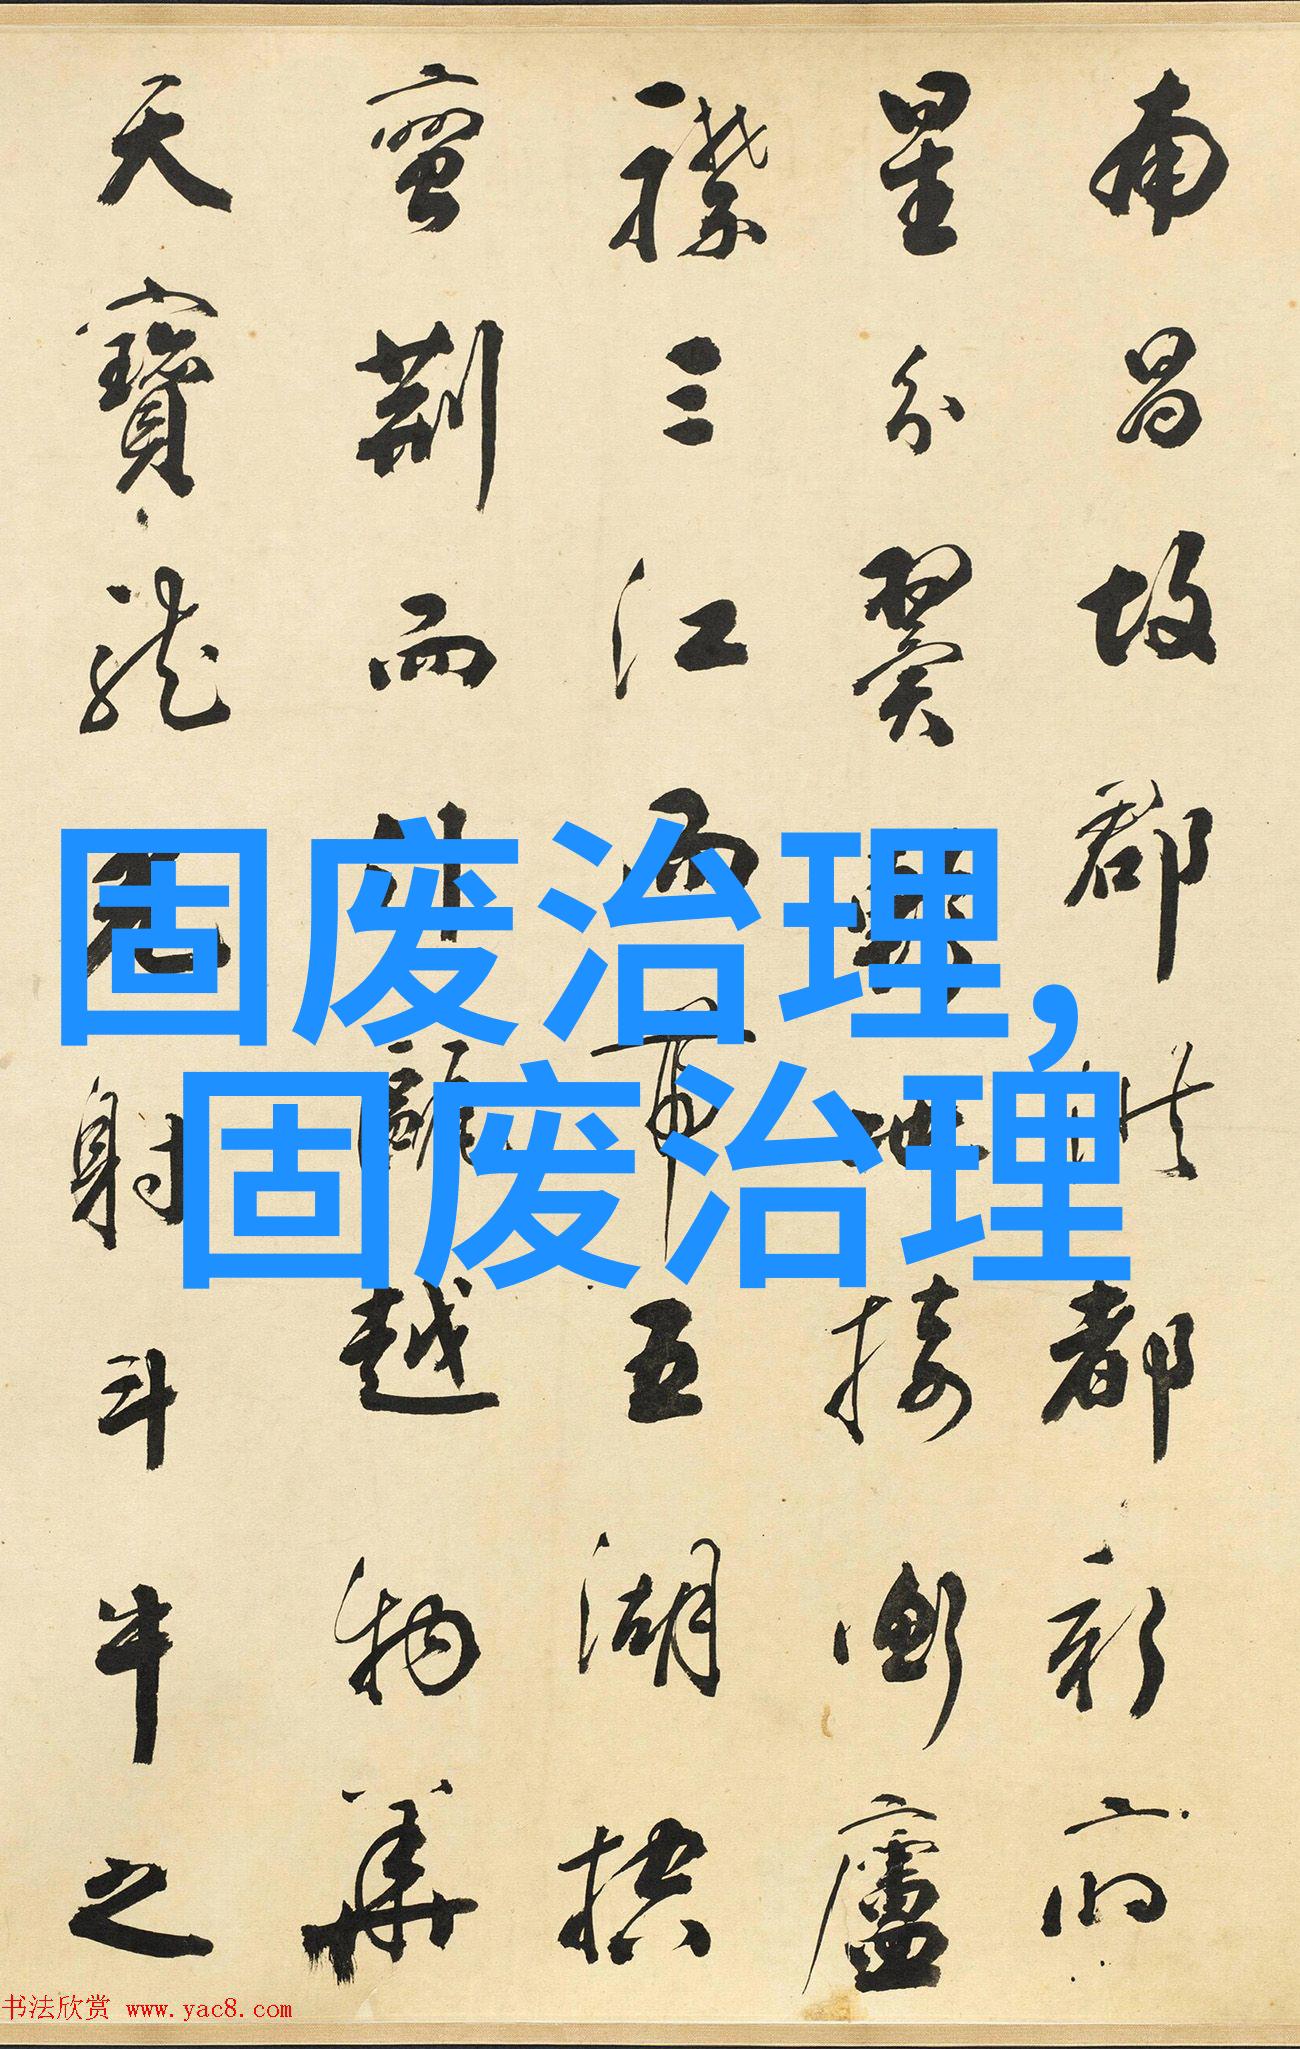 南昌故郡洪都新府
星分翼軫地接衡廬
襟三江而帶五湖控
蠻荊而引甌越物華
天寶龍光射斗牛之
固废治理,
固废治理
书法欣赏 www.yac8.com